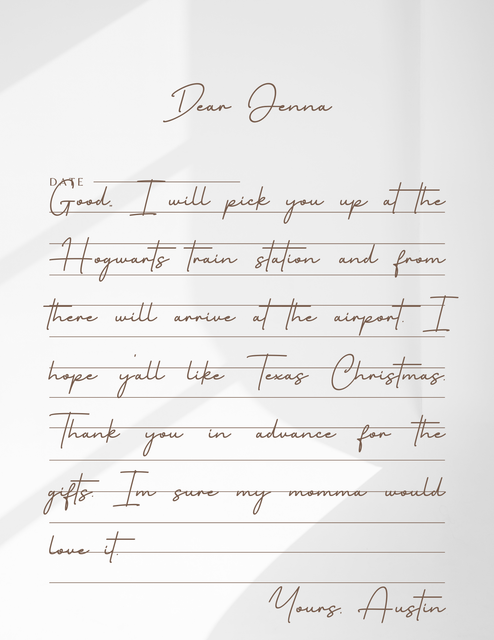 Dear Jenna
DATE
Good. I will pick you up at the
Hogwarts train station and from
there will arrive at the airport. I
hope y'all like Texas Christmas.
Thank you in advance for the
gifts. Im sure my momma would
love it.
Yours, Austin